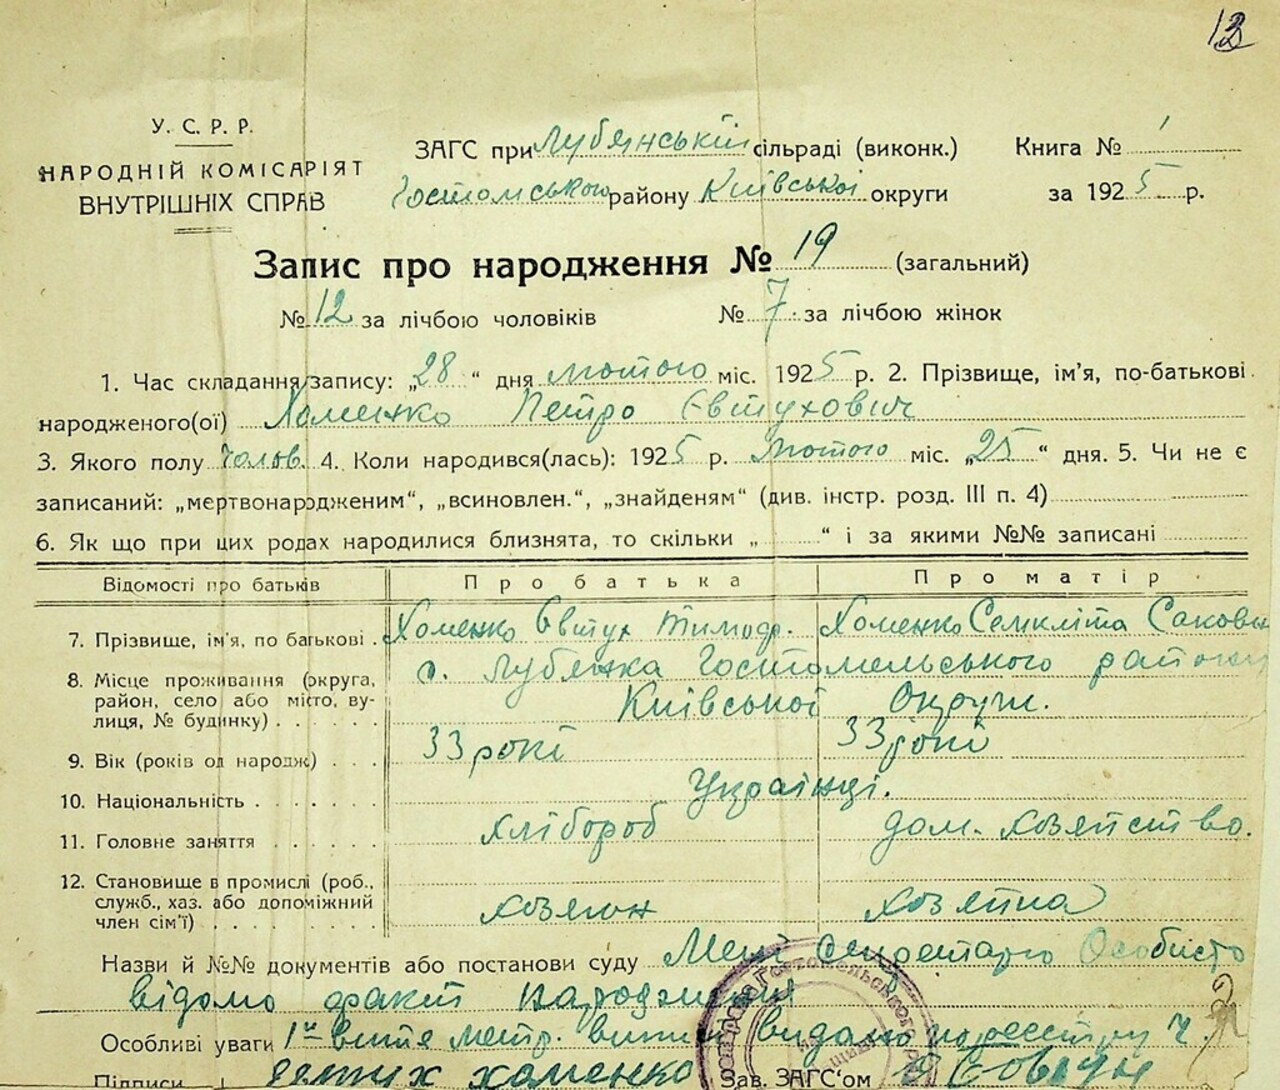 13
У. С. Р. Р.
НАРОДНІЙ КОМІСАРІЯТ
ВНУТРІШНІХ СПРАВ
ЗАГС при Лубянській сільраді (виконк.)
Гостомського району Київської округи
Книга № 1
за 1925 р.
Запис про народження № 19 (загальний)
№ 12 за лічбою чоловіків № 7 за лічбою жінок
1. Час складання запису: „28“ дня лютого міс. 1925 р. 2. Прізвище, ім'я, по-батькові
народженого(ої) Хоменко Петро Євтухович
3. Якого полу Чолов. 4. Коли народився(лась): 1925 р. Лютого міс. „25“ дня. 5. Чи не є
записаний: „мертвонародженим“, „всиновлен.“, „знайденям“ (див. інстр. розд. III п. 4)
6. Як що при цих родах народилися близнята, то скільки „ “ і за якими №№ записані
Відомості про батьків Про батька Про матір
7. Прізвище, ім'я, по батькові . Хоменко Євтух Тимоф. Хоменко Семкліта Саковн
8. Місце проживання (округа, с. Лубянка Гостомельського району
район, село або місто, ву-
лиця, № будинку) . . . . Київської Округи.
9. Вік (років од народж.) . . . 33 рокі 33 рокі
10. Національність . . . . . . . Українці.
11. Головне заняття . . . . . . хлібороб дом. хозяйство.
12. Становище в промислі (роб.,
служб., хаз. або допоміжний
член сім'ї) . . . . . . . . . хозяин хозяйка
Назви й №№ документів або постанови суду Мені Секретарю Особисто
відомо факт народження
Особливі уваги 1ш витя метр. видано по реєстру Ч.
Підписи Євтух Хаменко Зав. ЗАГС'ом
Гостомельського